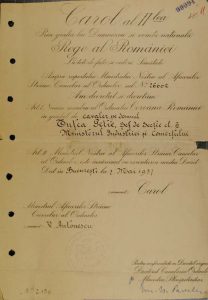 Carol al II lea
Prin grația lui Dumnezeu și voința națională
Rege al României
La toți de față și viitori Sănătate
Asupra raportului Ministrului Nostru al Afacerilor
Străine Cancelar al Ordinelor
Am decretat și decretăm
Art. I. Numim membru al Ordinului Coroana României
în gradul de cavaler pe domnul
Ministerul Industriei și Comerțului
Art. II Ministrul Nostru al Afacerilor Străine Cancelar
al Ordinelor este însărcinat cu executarea acestui Decret
Dat în București la 7 Mai 1937
Carol
Ministrul Afacerilor Străine
Cancelar al Ordinelor
V. Antonescu